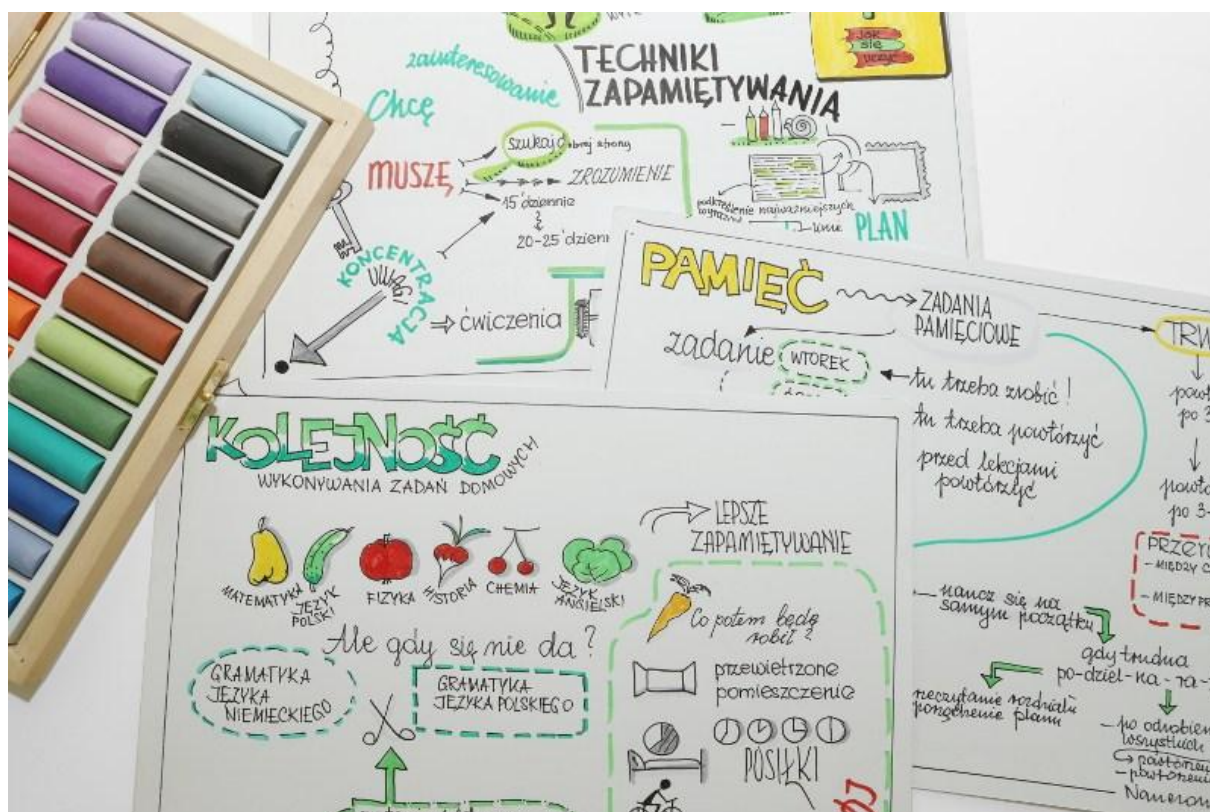 Jak
się
uczyć
TECHNIKI
ZAPAMIĘTYWANIA
zainteresowanie
Chcę
MUSZĘ
szukaj dobrej strony
ZROZUMIENIE
15' dziennie
20-25' dzienn
podkreślenie najważniejszych
wyrazów
PLAN
KONCENTRACJA
UWAGI
ćwiczenia
PAMIĘĆ
ZADANIA
PAMIĘCIOWE
TRW
zadanie WTOREK
tu trzeba zrobić!
tu trzeba powtórzyć
przed lekcjami
powtórzyć
powt
po 3
powtó
po 3-
PRZERW
- MIĘDZY C
- MIĘDZY PR
naucz się na
samym początku
gdy trudna
po-dziel-na-ra-
przeczytanie rozdziału
porządzenie planu
- po odrobien
wszystkich
powtórzen
- powtórzeni
KOLEJNOŚĆ
WYKONYWANIA ZADAŃ DOMOWYCH
MATEMATYKA
JĘZYK
POLSKI
FIZYKA
HISTORIA
CHEMIA
JĘZYK
ANGIELSKI
Ale gdy się nie da?
GRAMATYKA
JĘZYKA
NIEMIECKIEGO
GRAMATYKA
JĘZYKA POLSKIEGO
LEPSZE
ZAPAMIĘTYWANIE
Co potem będę
robił?
przewietrzone
pomieszczenie
POSIŁKI